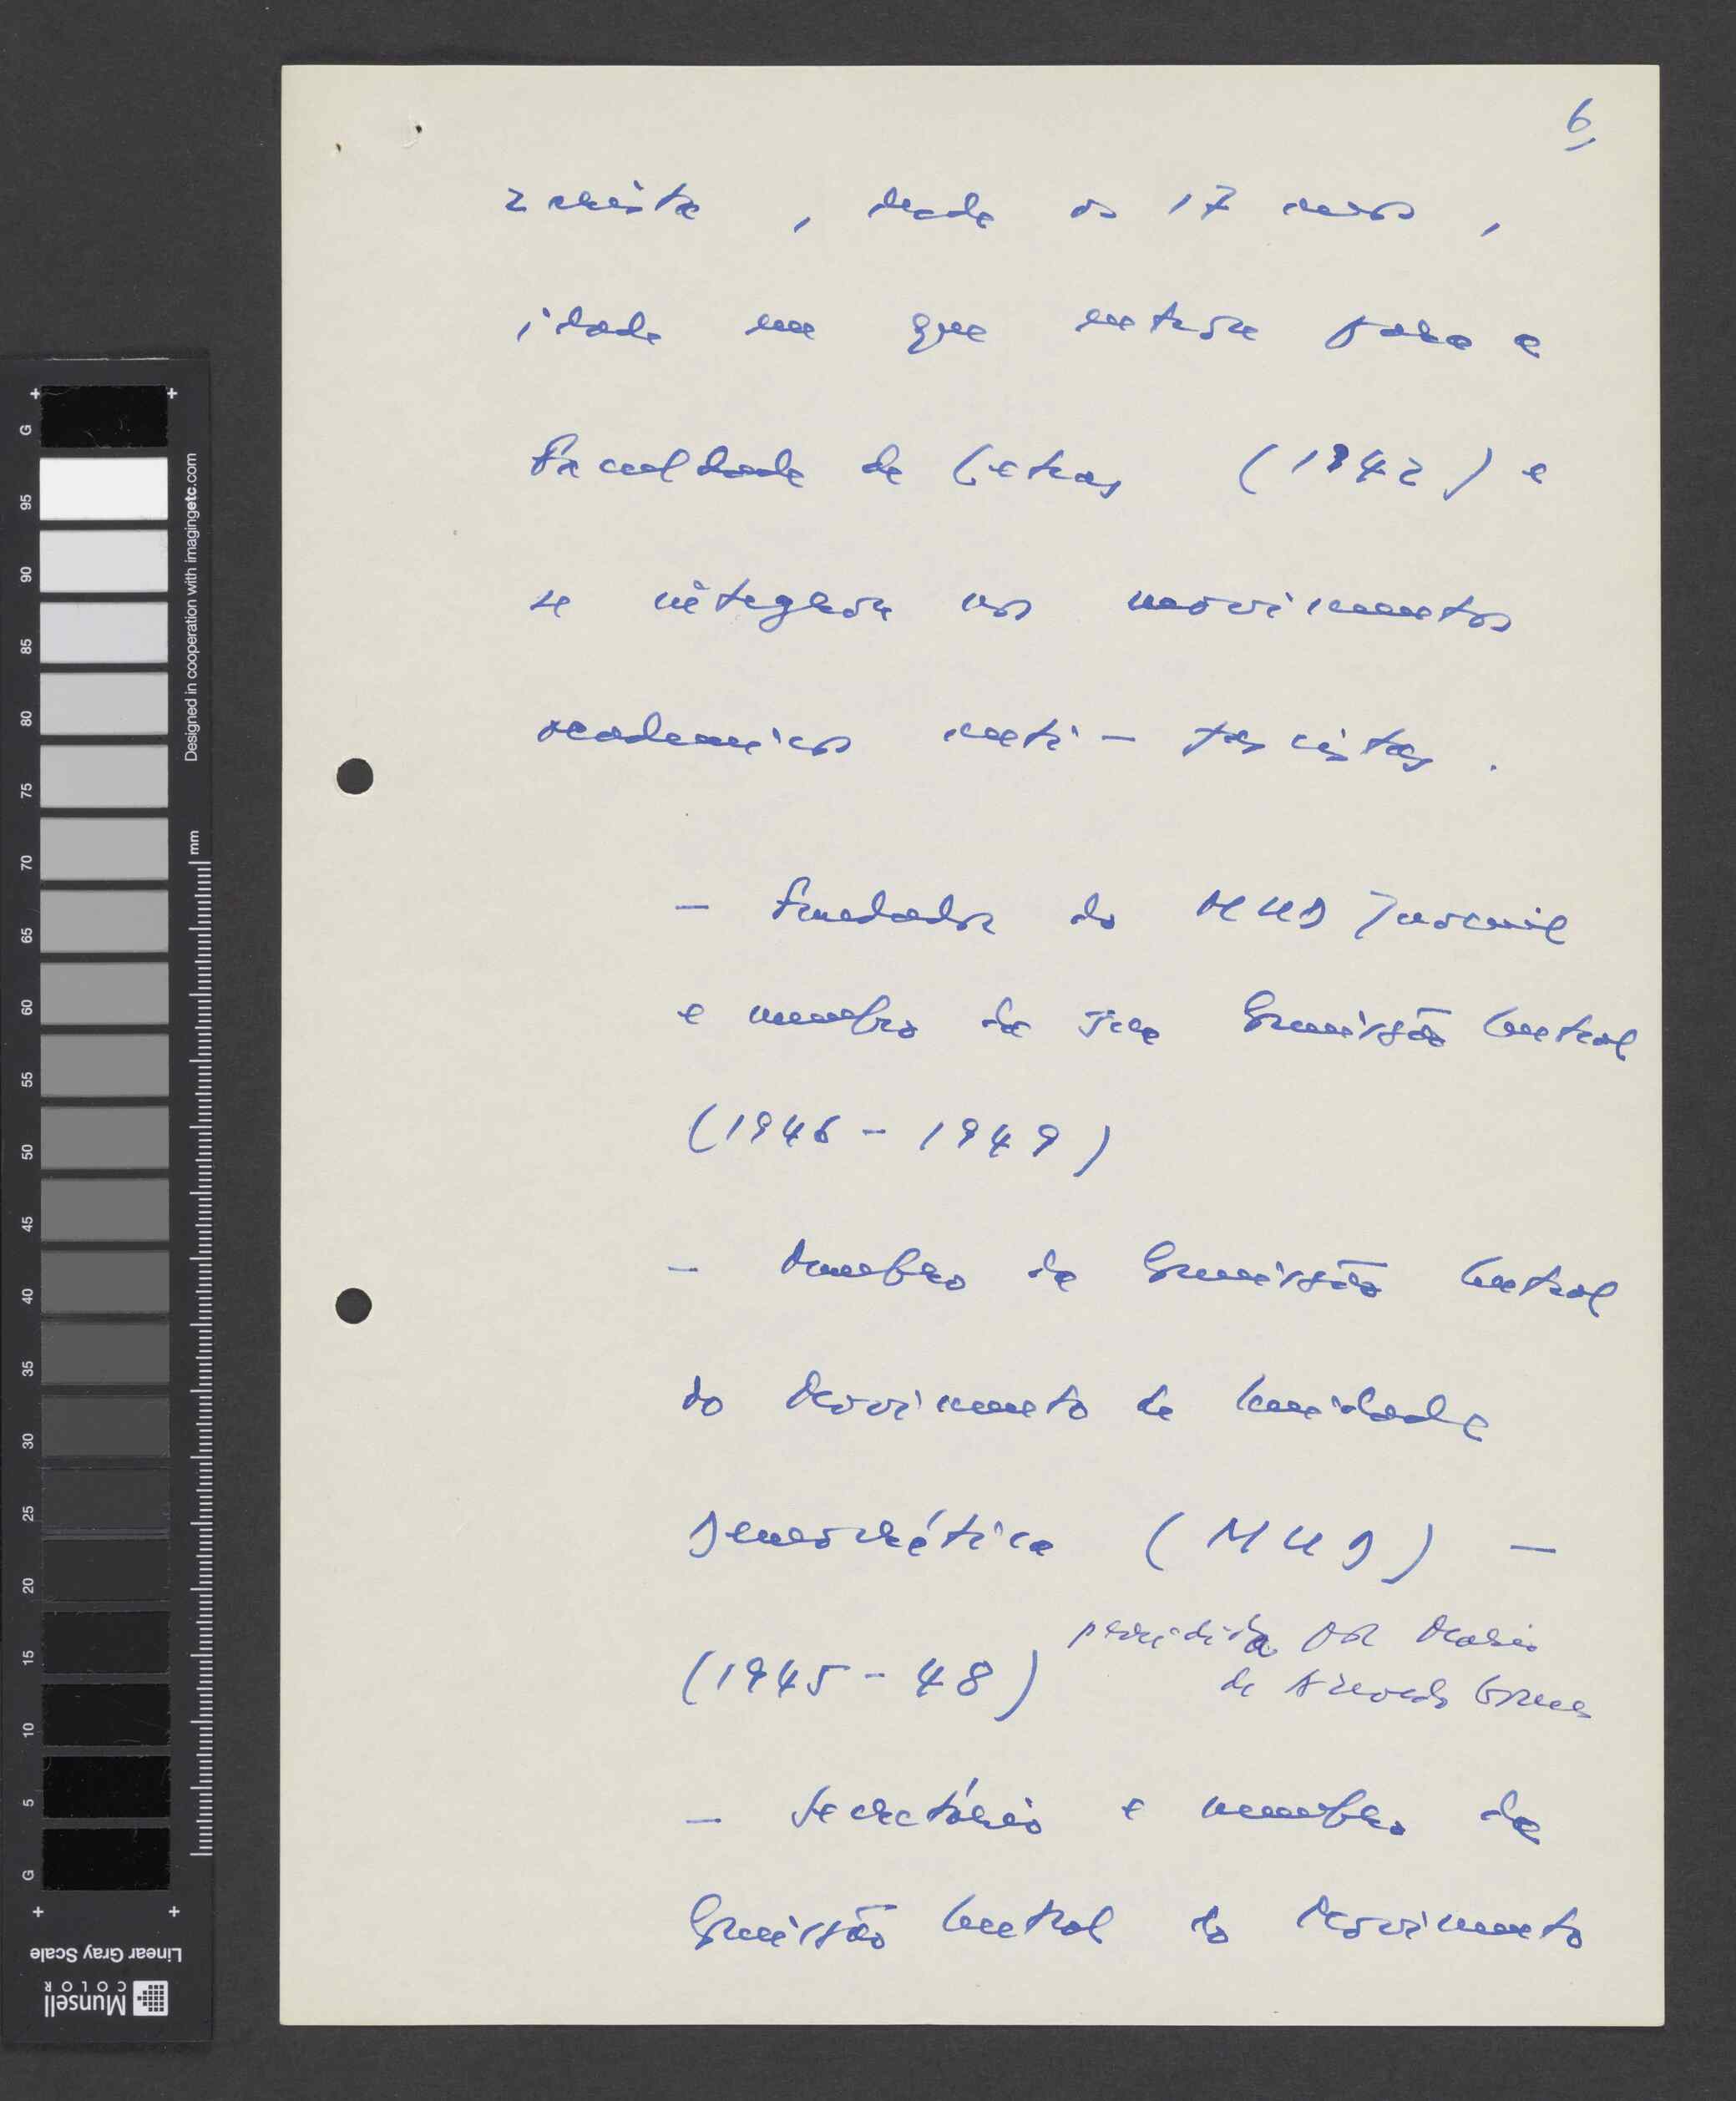 6
zarista, desde os 17 anos,
idade em que entrou para a
Faculdade de Letras (1942) e
se integrou nos movimentos
academicos anti-fascistas.
- Fundador do MUD Juvenil
e membro da sua Comissão Central
(1946-1949)
- Membro da Comissão Central
do Movimento de Unidade
Democrática (MUD) -
presidida por Mario
(1945-48)
de Azevedo Gomes
- Secretário e membro da
Comissão Central do Movimento
G 95 90 85 80 75 70 65 60 55 50 45 40 35 30 25 20 15 10 5 G
Designed in cooperation with imagingetc.com
mm
Linear Gray Scale
Munsell
COLOR